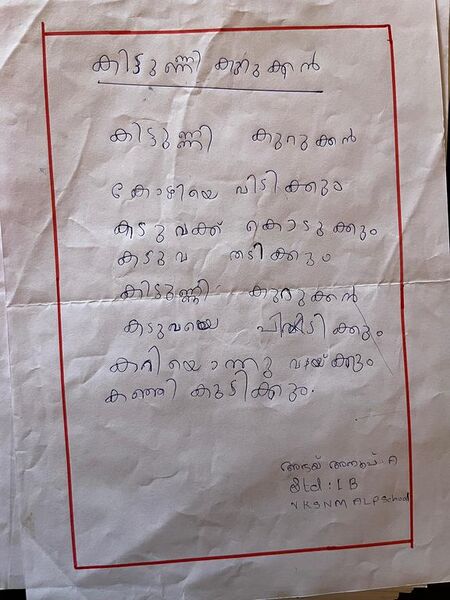 കിട്ടുണ്ണി കുറുക്കൻ
കിട്ടുണ്ണി കുറുക്കൻ
കോഴിയെ പിടിക്കും
കടുവക്ക് കൊടുക്കും
കടുവ തടിക്കും
കിട്ടുണ്ണി കുറുക്കൻ
കടുവയെ പിടിക്കും
കറിയൊന്നു വയ്ക്കും
കഞ്ഞി കുടിക്കും.
A
Std : I B
VKSNM ALP School